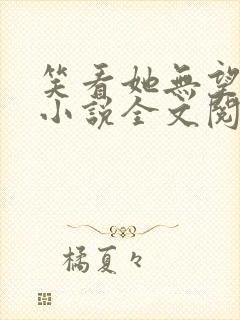 笑看她無望
小說全文閱
橘夏々